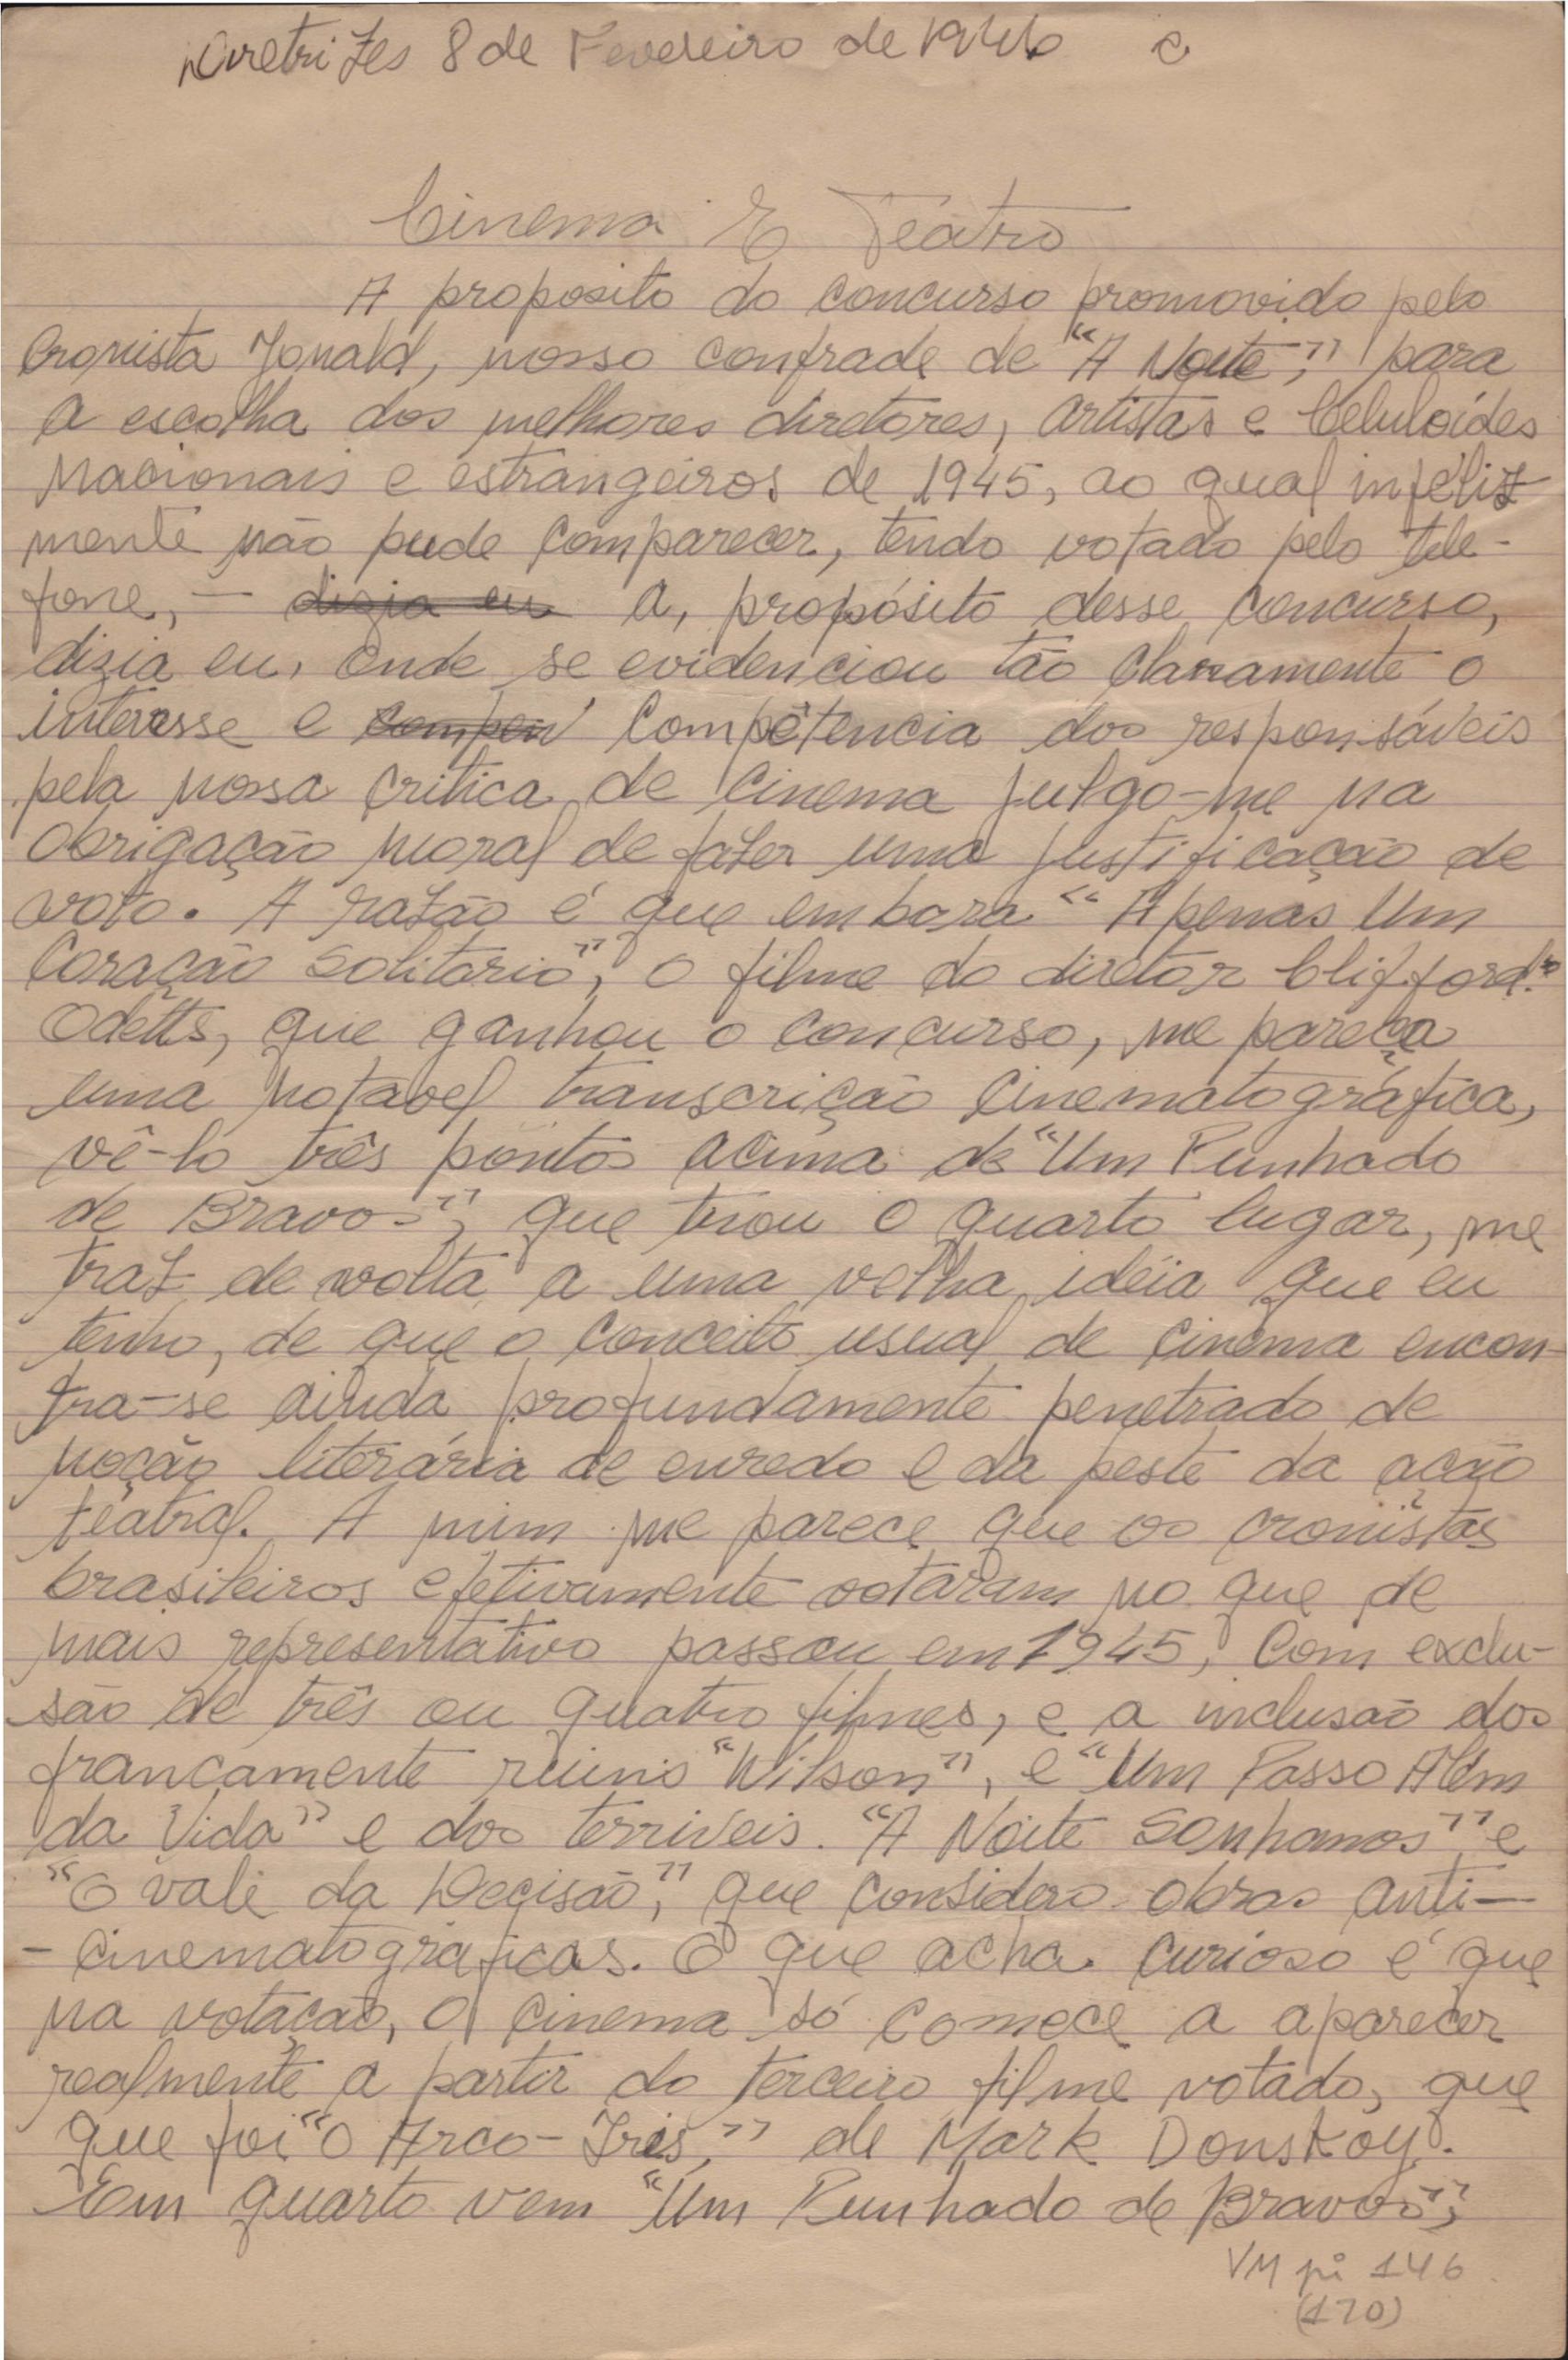 Diretrizes 8 de Fevereiro de 1946 c
Cinema E Teatro
A proposito do concurso promovido pelo
Cronista Jonald, nosso confrade de "A Noite", para
a escolha dos melhores diretores, artistas e Celuloides
Nacionais e estrangeiros de 1945, ao qual infeliz
mente não pude comparecer, tendo votado pelo tele-
fone, - dizia eu a, propósito desse concurso,
dizia eu, onde se evidenciou tão claramente o
interesse e compen Competencia dos responsáveis
pela nossa critica de cinema julgo-me na
obrigação moral de fazer uma justificação de
voto. A razão é que embora "Apenas Um
Coração Solitário", o filme do diretor Clifford
Odetts, que ganhou o concurso, me pareça
uma notavel transcrição cinematográfica,
vê-lo três pontos acima de "Um Punhado
de Bravos", que tirou o quarto lugar, me
traz de volta a uma velha idéia que eu
tenho, de que o conceito usual de cinema encon-
tra-se ainda profundamente penetrado de
noção literária de enredo e da peste da ação
teatral. A mim me parece que os cronistas
brasileiros efetivamente votaram no que de
mais representativo passou em 1945, Com exclu-
são de três ou quatro filmes, e a inclusão dos
francamente ruins "Wilson", e "Um Passo Além
da Vida" e dos terriveis. "A Noite Sonhamos" e
"O vale da Decisão", que considero obras anti-
- cinematográficas. O que acha curioso é que
na votação, o cinema só comece a aparecer
realmente a partir do terceiro filme votado, que
que foi "O Arco-Iris," de Mark Donskoy.
Em quarto vem "Um Punhado de Bravos",
VM pi 146
(170)